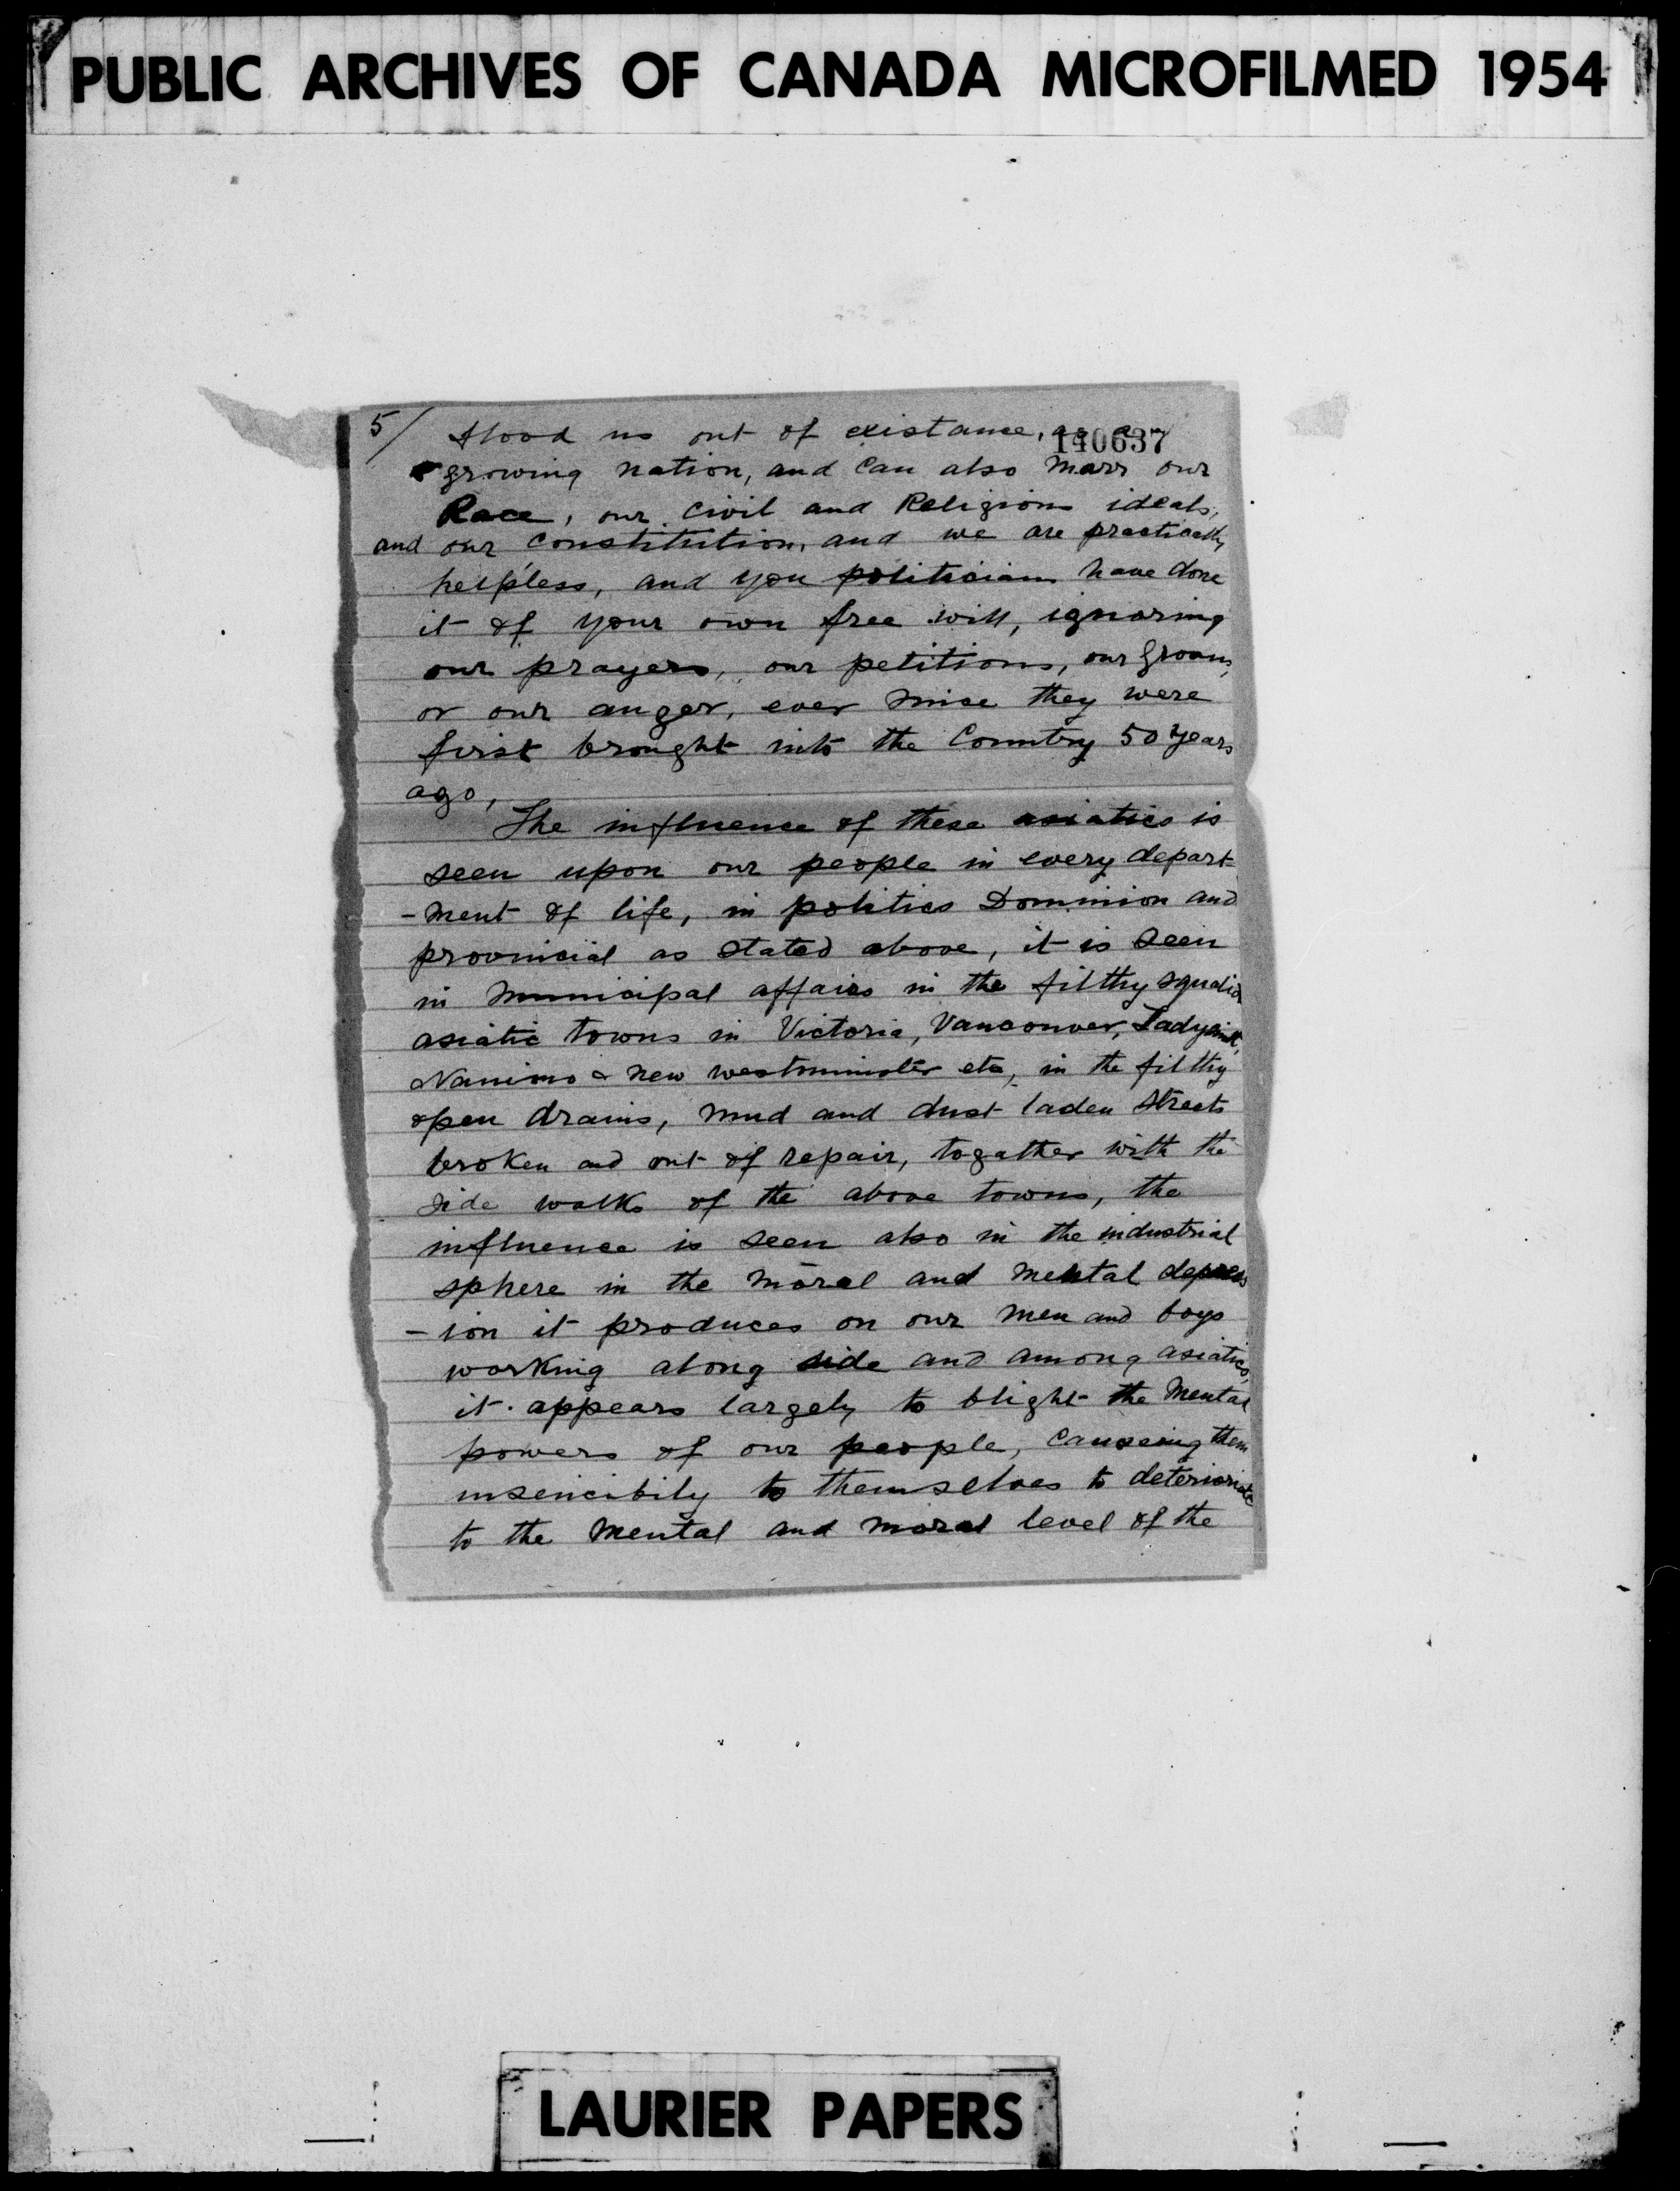 PUBLIC ARCHIVES OF CANADA MICROFILMED 1954
5/ flood us out of existance, as a
140637
growing nation, and can also marr our
Race, our civil and Religious ideals,
and our constitution, and we are practically
helpless, and you politicians have done
it of your own free will, ignoring
our prayers, our petitions, our groans,
or our anger, ever since they were
first brought into the Country 50 years
ago,
The influence of these asiatics is
seen upon our people in every depart-
-ment of life, in politics Dominion and
provincial as stated above, it is seen
in municipal affairs in the filthy squalid
asiatic towns in Victoria, Vancouver, Ladysmith,
Nanimo & new westminister etc, in the filthy
open drains, mud and dust laden streets
broken and out of repair, togather with the
side walks of the above towns, the
influence is seen also in the industrial
sphere in the moral and mental depress
-ion it produces on our men and boys
working along side and among asiatics,
it appears largely to blight the mental
powers of our people, causeing them
insencibily to themselves to deterioriate
to the mental and moral level of the
LAURIER PAPERS